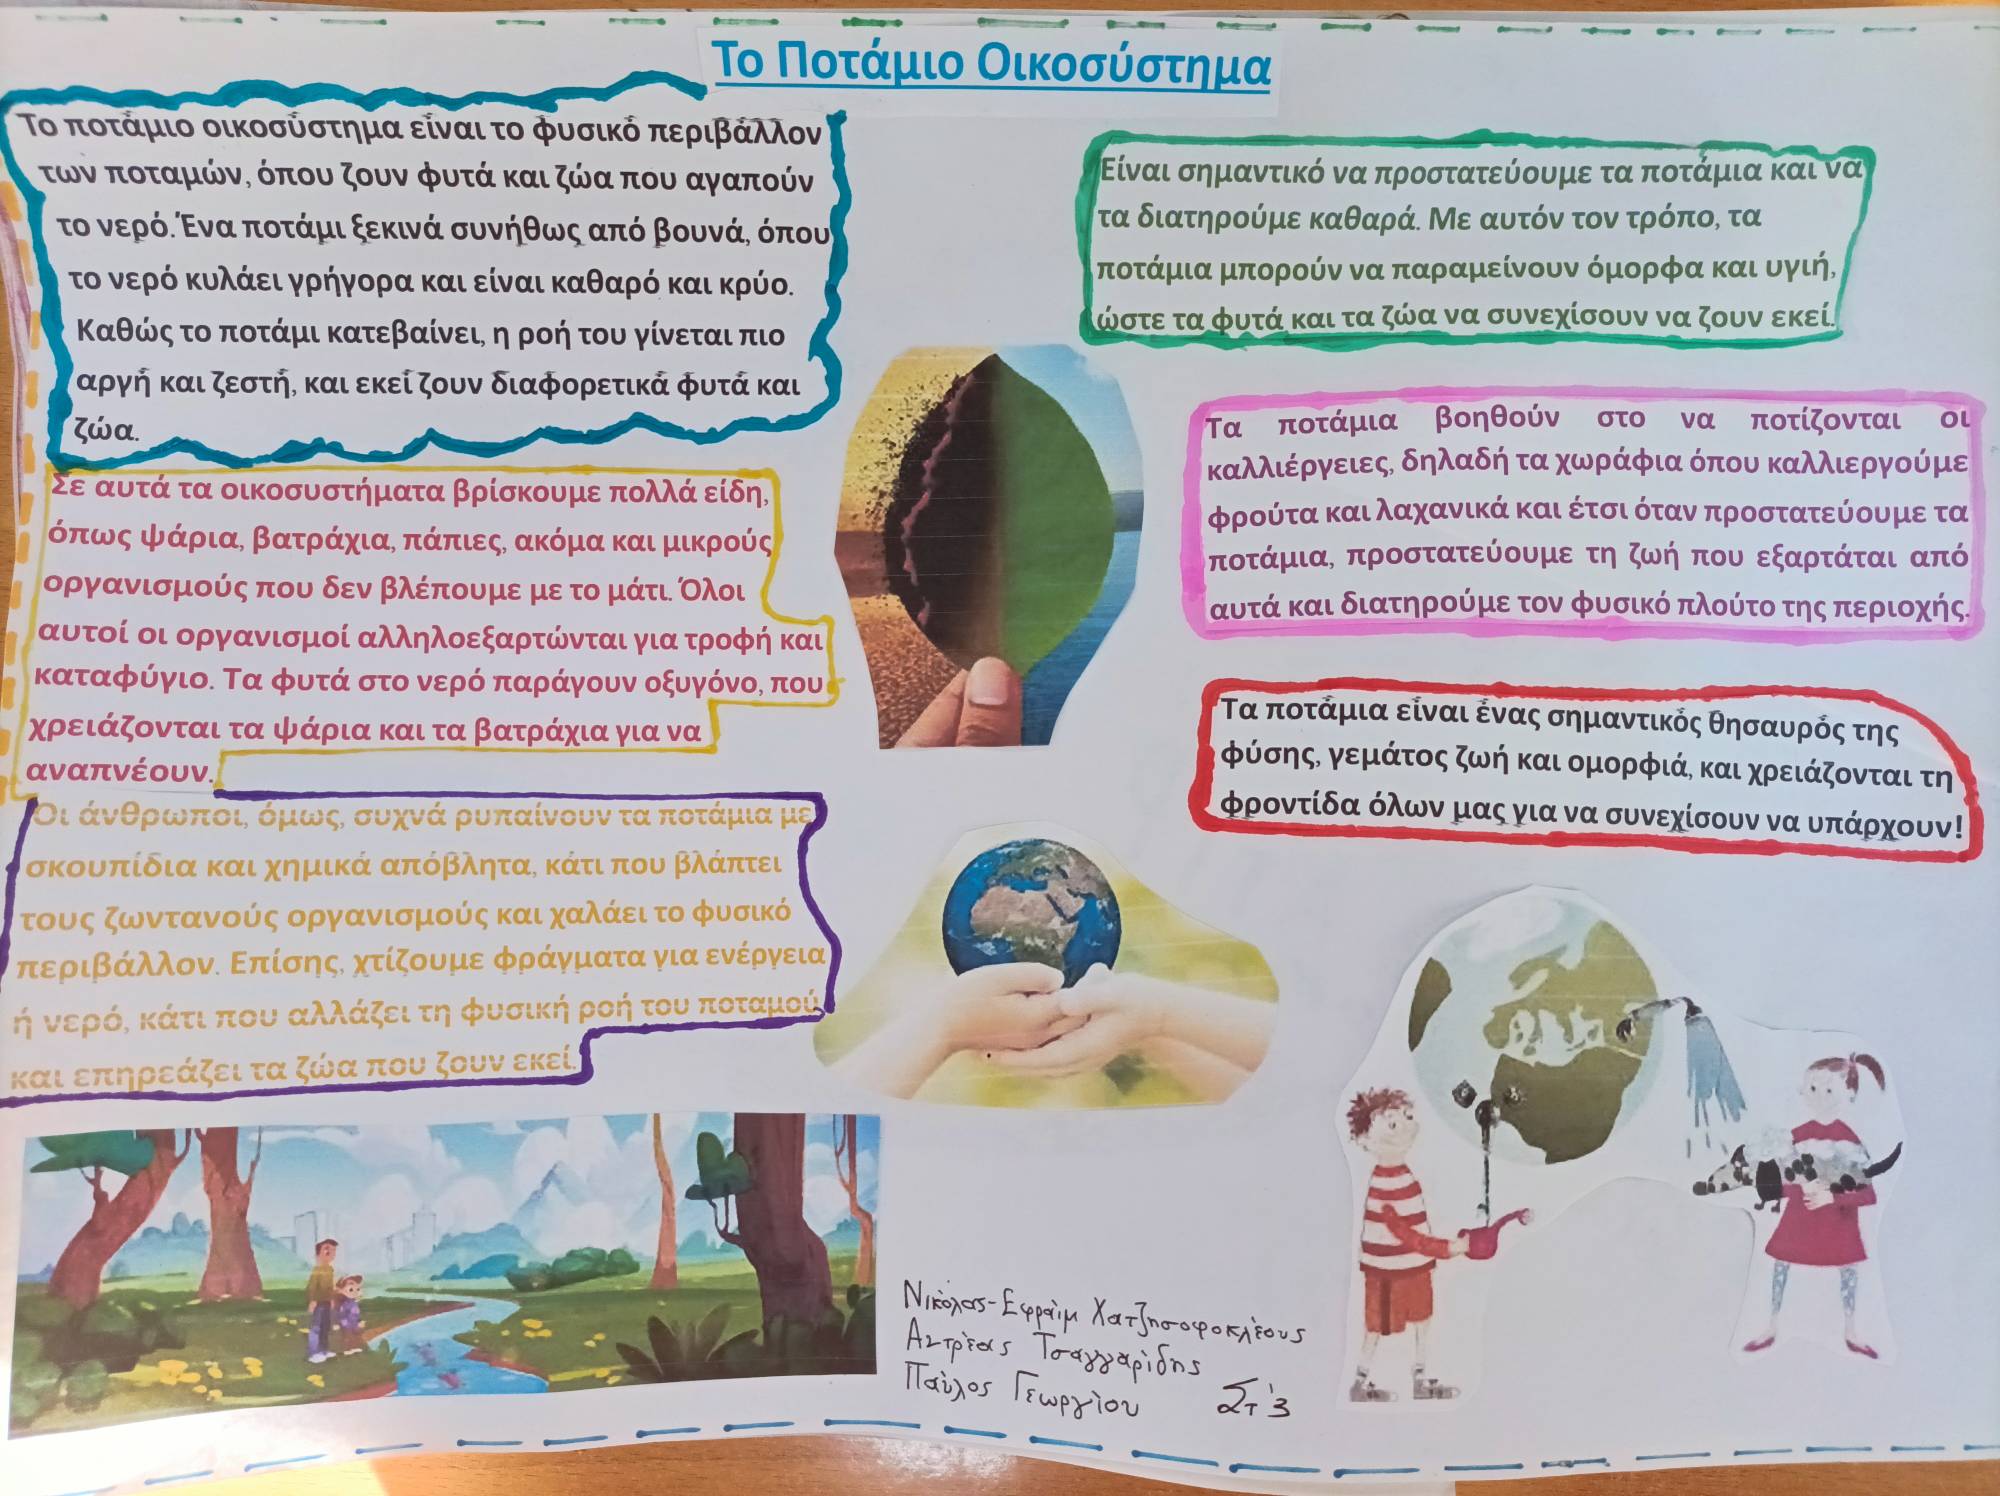 Το Ποτάμιο Οικοσύστημα
Το ποτάμιο οικοσύστημα είναι το φυσικό περιβάλλον
των ποταμών, όπου ζουν φυτά και ζώα που αγαπούν
το νερό. Ένα ποτάμι ξεκινά συνήθως από βουνά, όπου
το νερό κυλάει γρήγορα και είναι καθαρό και κρύο.
Καθώς το ποτάμι κατεβαίνει, η ροή του γίνεται πιο
αργή και ζεστή, και εκεί ζουν διαφορετικά φυτά και
ζώα.
Σε αυτά τα οικοσυστήματα βρίσκουμε πολλά είδη,
όπως ψάρια, βατράχια, πάπιες, ακόμα και μικρούς
οργανισμούς που δεν βλέπουμε με το μάτι. Όλοι
αυτοί οι οργανισμοί αλληλοεξαρτώνται για τροφή και
καταφύγιο. Τα φυτά στο νερό παράγουν οξυγόνο, που
χρειάζονται τα ψάρια και τα βατράχια για να
αναπνέουν.
Οι άνθρωποι, όμως, συχνά ρυπαίνουν τα ποτάμια με
σκουπίδια και χημικά απόβλητα, κάτι που βλάπτει
τους ζωντανούς οργανισμούς και χαλάει το φυσικό
περιβάλλον. Επίσης, χτίζουμε φράγματα για ενέργεια
ή νερό, κάτι που αλλάζει τη φυσική ροή του ποταμού
και επηρεάζει τα ζώα που ζουν εκεί.
Είναι σημαντικό να προστατεύουμε τα ποτάμια και να
τα διατηρούμε καθαρά. Με αυτόν τον τρόπο, τα
ποτάμια μπορούν να παραμείνουν όμορφα και υγιή,
ώστε τα φυτά και τα ζώα να συνεχίσουν να ζουν εκεί.
Τα ποτάμια βοηθούν στο να ποτίζονται οι
καλλιέργειες, δηλαδή τα χωράφια όπου καλλιεργούμε
φρούτα και λαχανικά και έτσι όταν προστατεύουμε τα
ποτάμια, προστατεύουμε τη ζωή που εξαρτάται από
αυτά και διατηρούμε τον φυσικό πλούτο της περιοχής.
Τα ποτάμια είναι ένας σημαντικός θησαυρός της
φύσης, γεμάτος ζωή και ομορφιά, και χρειάζονται τη
φροντίδα όλων μας για να συνεχίσουν να υπάρχουν!
Νικόλας-Εφραίμ Χατζησοφοκλέους
Αντρέας Τσαγγαρίδης
Παύλος Γεωργίου Στ'3